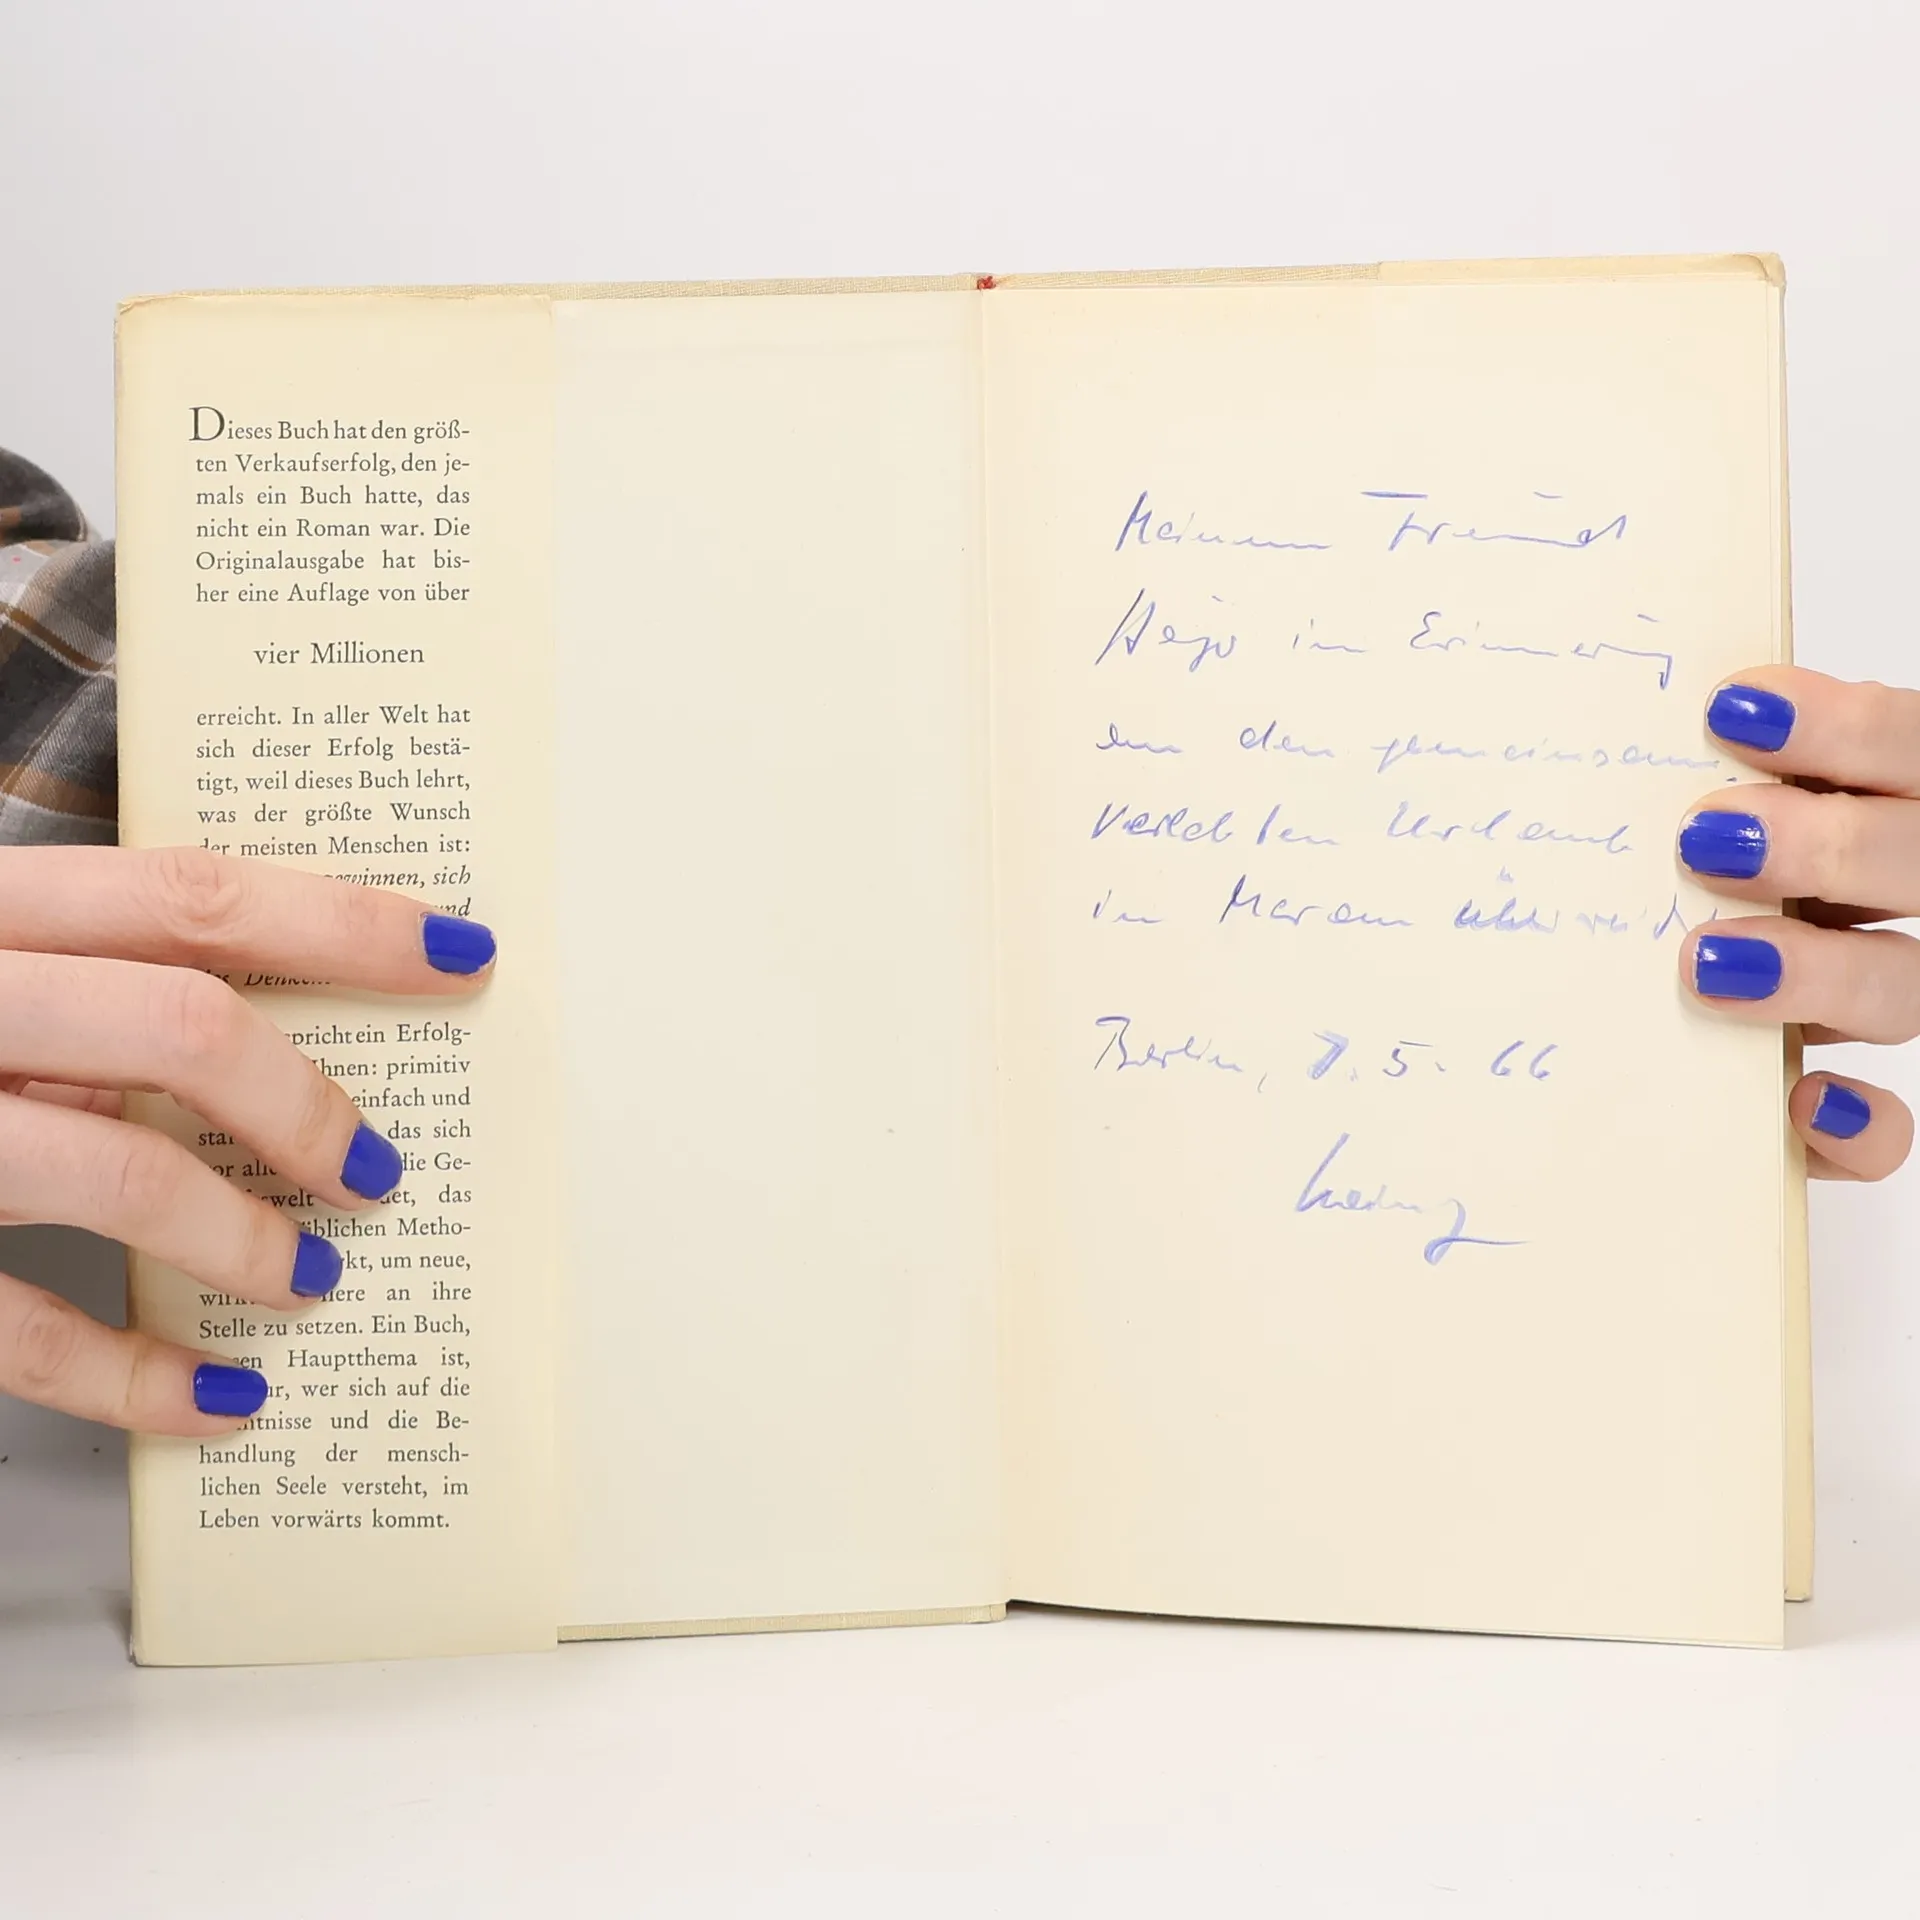 Dieses Buch hat den größ-
ten Verkaufserfolg, den je-
mals ein Buch hatte, das
nicht ein Roman war. Die
Originalausgabe hat bis-
her eine Auflage von über
vier Millionen
erreicht. In aller Welt hat
sich dieser Erfolg bestä-
tigt, weil dieses Buch lehrt,
was der größte Wunsch
der meisten Menschen ist:
gewinnen, sich
spricht ein Erfolg-
Ihnen: primitiv
einfach und
das sich
vor alle die Ge-
das
üblichen Metho-
um neue,
an ihre
Stelle zu setzen. Ein Buch,
Hauptthema ist,
wer sich auf die
und die Be-
handlung der mensch-
lichen Seele versteht, im
Leben vorwärts kommt.
Meinem Freund
Hejo in Erinnerung
an den gemeinsam
verlebten Urlaub
in Meran überreicht
Berlin, 7. 5. 66
Heinz